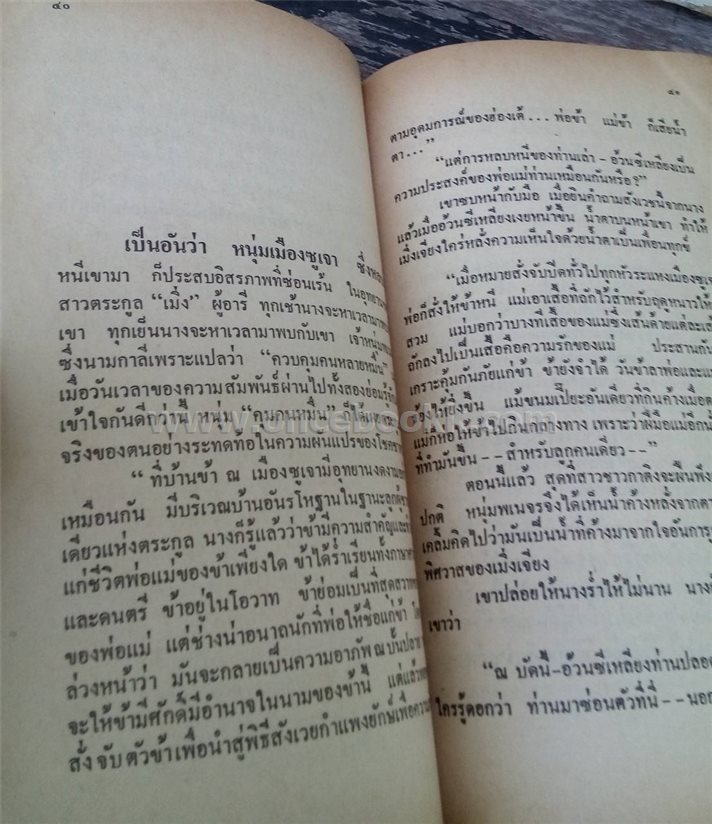 ๔๐
เป็นอันว่า หนุ่มเมืองซูเจา
หนีเขามา ก็ประสบอิสรภาพที่ซ่อนเร้น
สาวตระกูล “เมิ่ง” ผู้อารี ทุกเช้านางจะหาเวลามา
เขา ทุกเย็นนางจะหาเวลามาพบกับเขา
ซึ่งนามกาลีเพราะแปลว่า “ควบคุมคนหลายหมื่น”
เมื่อวันเวลาของความสัมพันธ์ผ่านไปทั้งสองย่อม
เข้าใจกันดีกว่านี้ หนุ่ม “คุมคนหมื่น”
จริงของตนอย่างระทดท้อในความผันแปรของ
“ ที่บ้านข้า ณ เมืองซูเจามีอุทยานงดงาม
เหมือนกัน มีบริเวณบ้านอันรโหฐานในฐานะลูก
เดียวแห่งตระกูล นางก็รู้แล้วว่าข้ามีความสำคัญ
แก่ชีวิตพ่อแม่ของข้าเพียงใด ข้าได้ร่ำเรียนทั้งภาษา
และดนตรี ข้าอยู่ในโอวาท ข้าย่อมเป็นที่สุดสวาท
ของพ่อแม่ แต่ช่างน่าอนาถนักที่พ่อให้ชื่อแก่ข้า
ล่วงหน้าว่า มันจะกลายเป็นความอาภัพณบั้นปลาย
จะให้ข้ามีศักดิ์มีอำนาจในนามของข้านี้ แต่แล้ว
สั่งจับตัวข้าเพื่อนำสู่พิธีสังเวยกำแพงยักษ์เพื่อ
๔๑
ตามอุดมการณ์ของฮ่องเต้... พ่อข้า แม่ข้า ก็เสียน้ำ
ตา...”
“แต่การหลบหนีของท่านเล่า - อ้วนซีเหลียงเป็น
ความประสงค์ของพ่อแม่ท่านเหมือนกันหรือ?”
เขาซบหน้ากับมือ เมื่อยินคำถามสังเวชนี้จากนาง
แล้วเมื่ออ้วนซีเหลียงเงยหน้าขึ้น น้ำตาบนหน้าเขา ทำให้
เมิ่งเจียงใคร่หลั่งความเห็นใจด้วยน้ำตาเป็นเพื่อนทุกข์
“เมื่อหมายสั่งจับปิดทั่วไปทุกหัวระแหงเมืองซูเจา
พ่อก็สั่งให้ข้าหนี แม่เอาเสื้อที่ถักไว้สำหรับฤดูหนาวให้
สวม แม่บอกว่าบางทีเสื้อของแม่ซึ่งเส้นด้ายแต่ละ
ถักลงไปเป็นเสื้อคือความรักของแม่ ประสาน
เกราะคุ้มกันภัยแก่ข้า ข้ายังจำได้ วันข้าลาพ่อและ
ร้องไห้ยิ่งขึ้น แม้ขนมเปี๊ยะอันเดียวที่กินค้างเมื่อ
แม่ก็ห่อให้ข้าไปกินกลางทาง เพราะว่าฝีมือแม่อีก
ที่ทำมันขึ้น - - สำหรับลูกคนเดียว - -”
ตอนนี้แล้ว สุดที่สาวชาวกาติงจะฝืน
ปกติ หนุ่มพเนจรจึงได้เห็นน้ำค้างหลั่งจาก
เคลิ้มคิดไปว่ามันเป็นน้ำที่ค้างมาจากใจอันการุ
พิศวาสของเมิ่งเจียง
เขาปล่อยให้นางร่ำไห้ไม่นาน
เขาว่า
“ณ บัดนี้-อ้วนซีเหลียงท่านปลอด
ใครรู้ดอกว่า ท่านมาซ่อนตัวที่นี่ - -